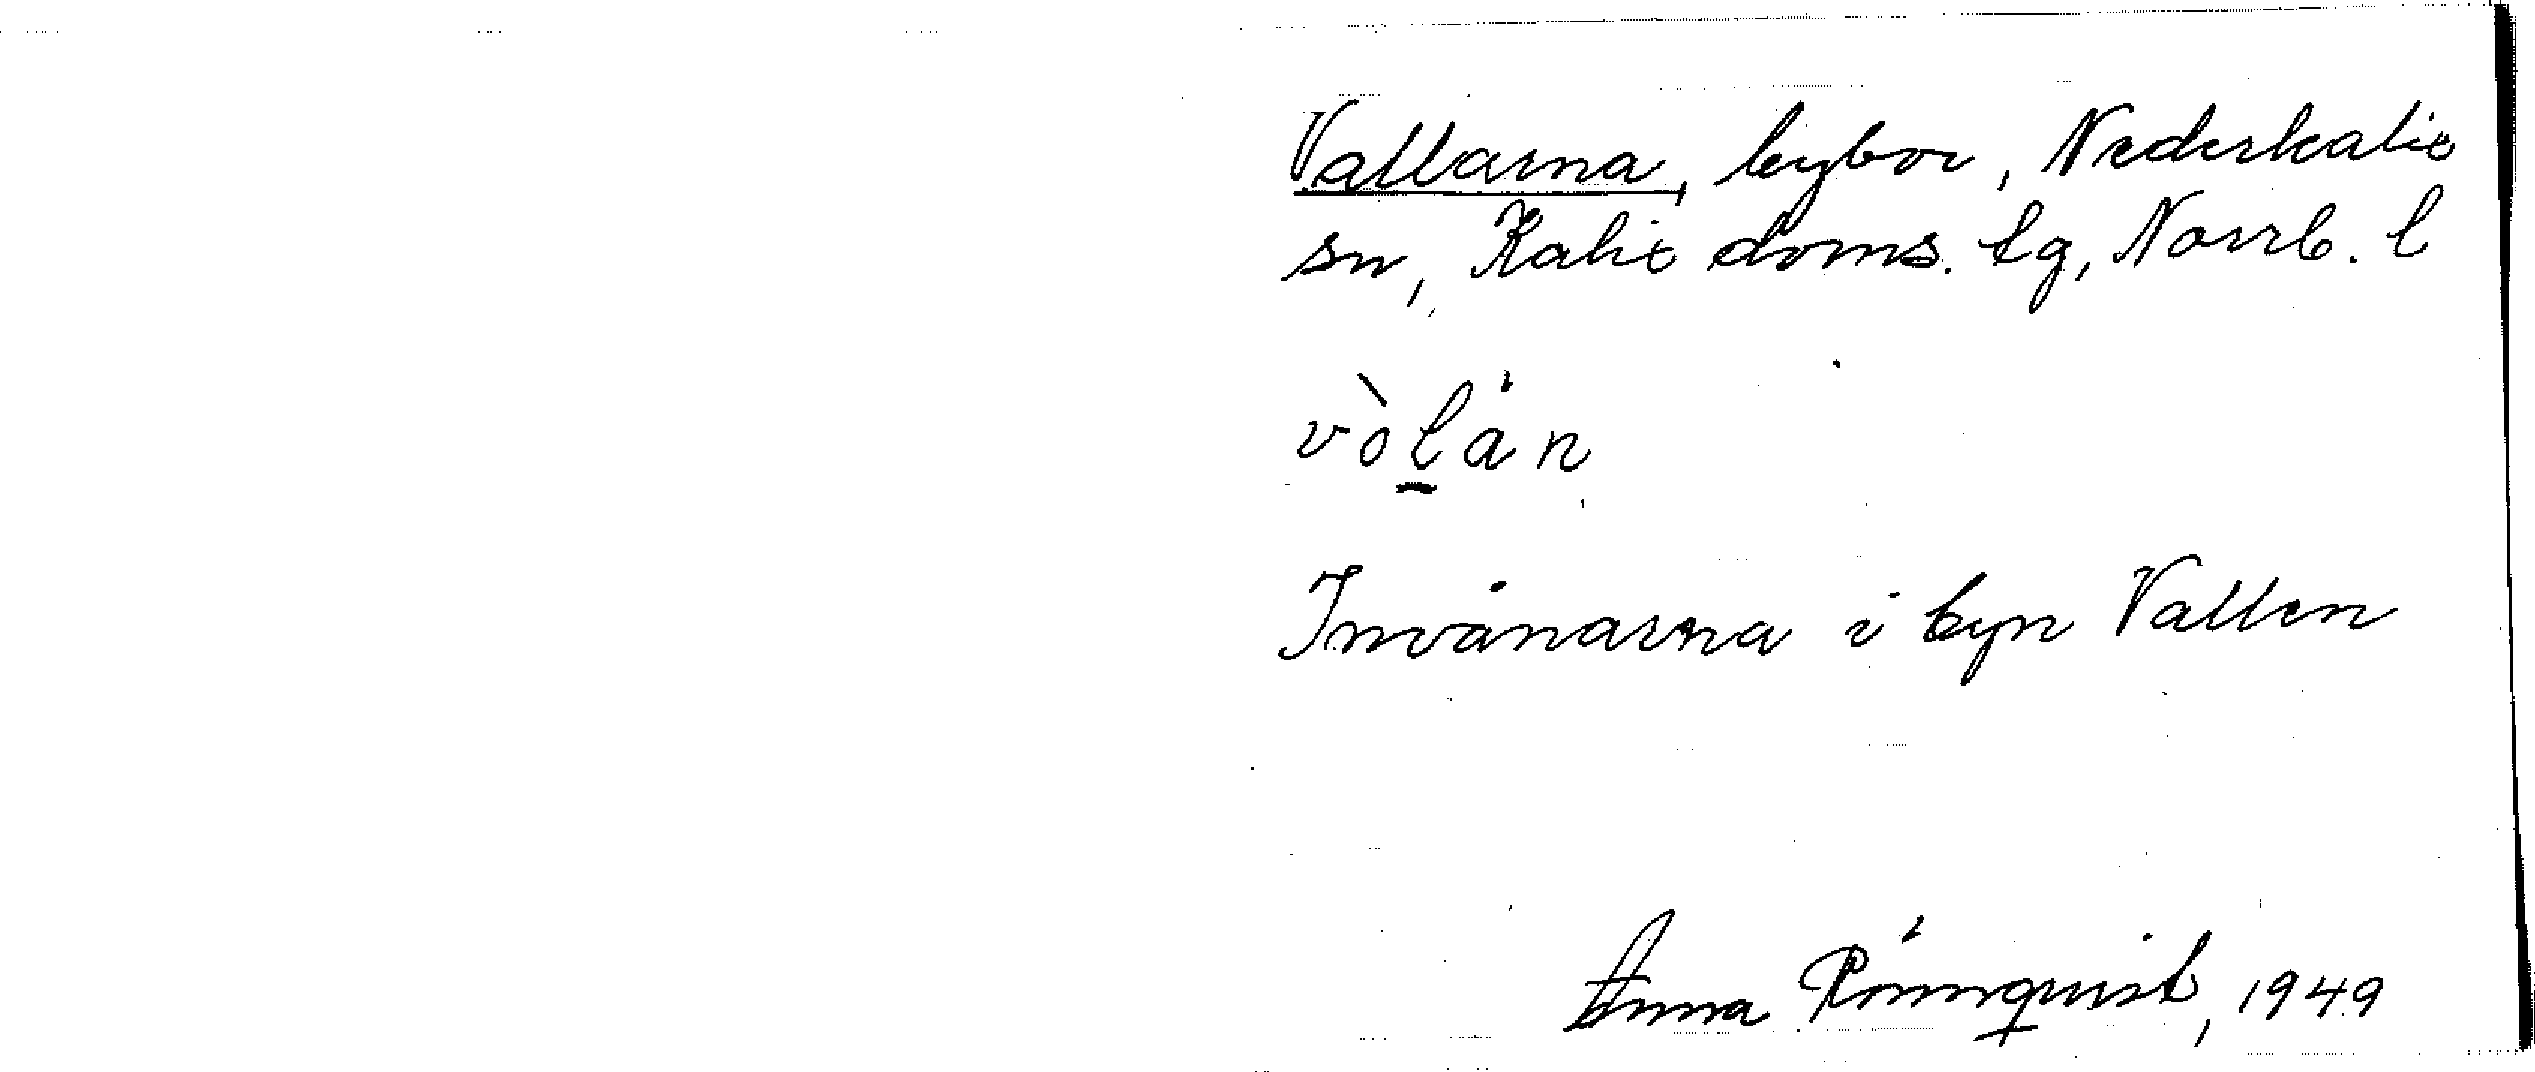 Vallarna, bybor, Nederkalix
sn, Kalix doms. lg, Norrb. l
vòl̲ȧn
Invånarna i byn Vallen
Anna Rönnquist, 1949